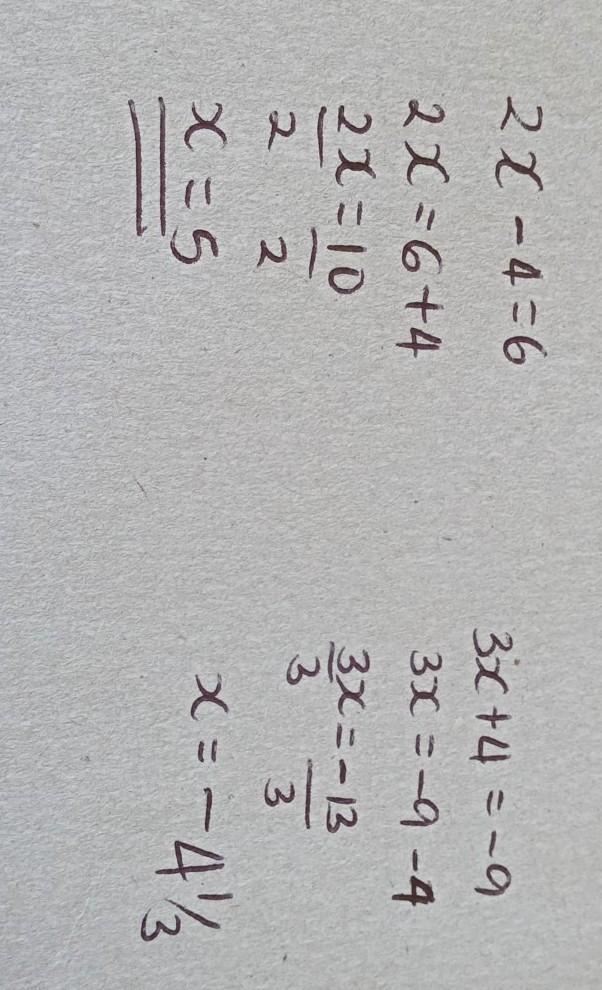 2x - 4 = 6
2x = 6 + 4
2x/2 = 10/2
x = 5
3x + 4 = -9
3x = -9 - 4
3x/3 = -13/3
x = -4 1/3